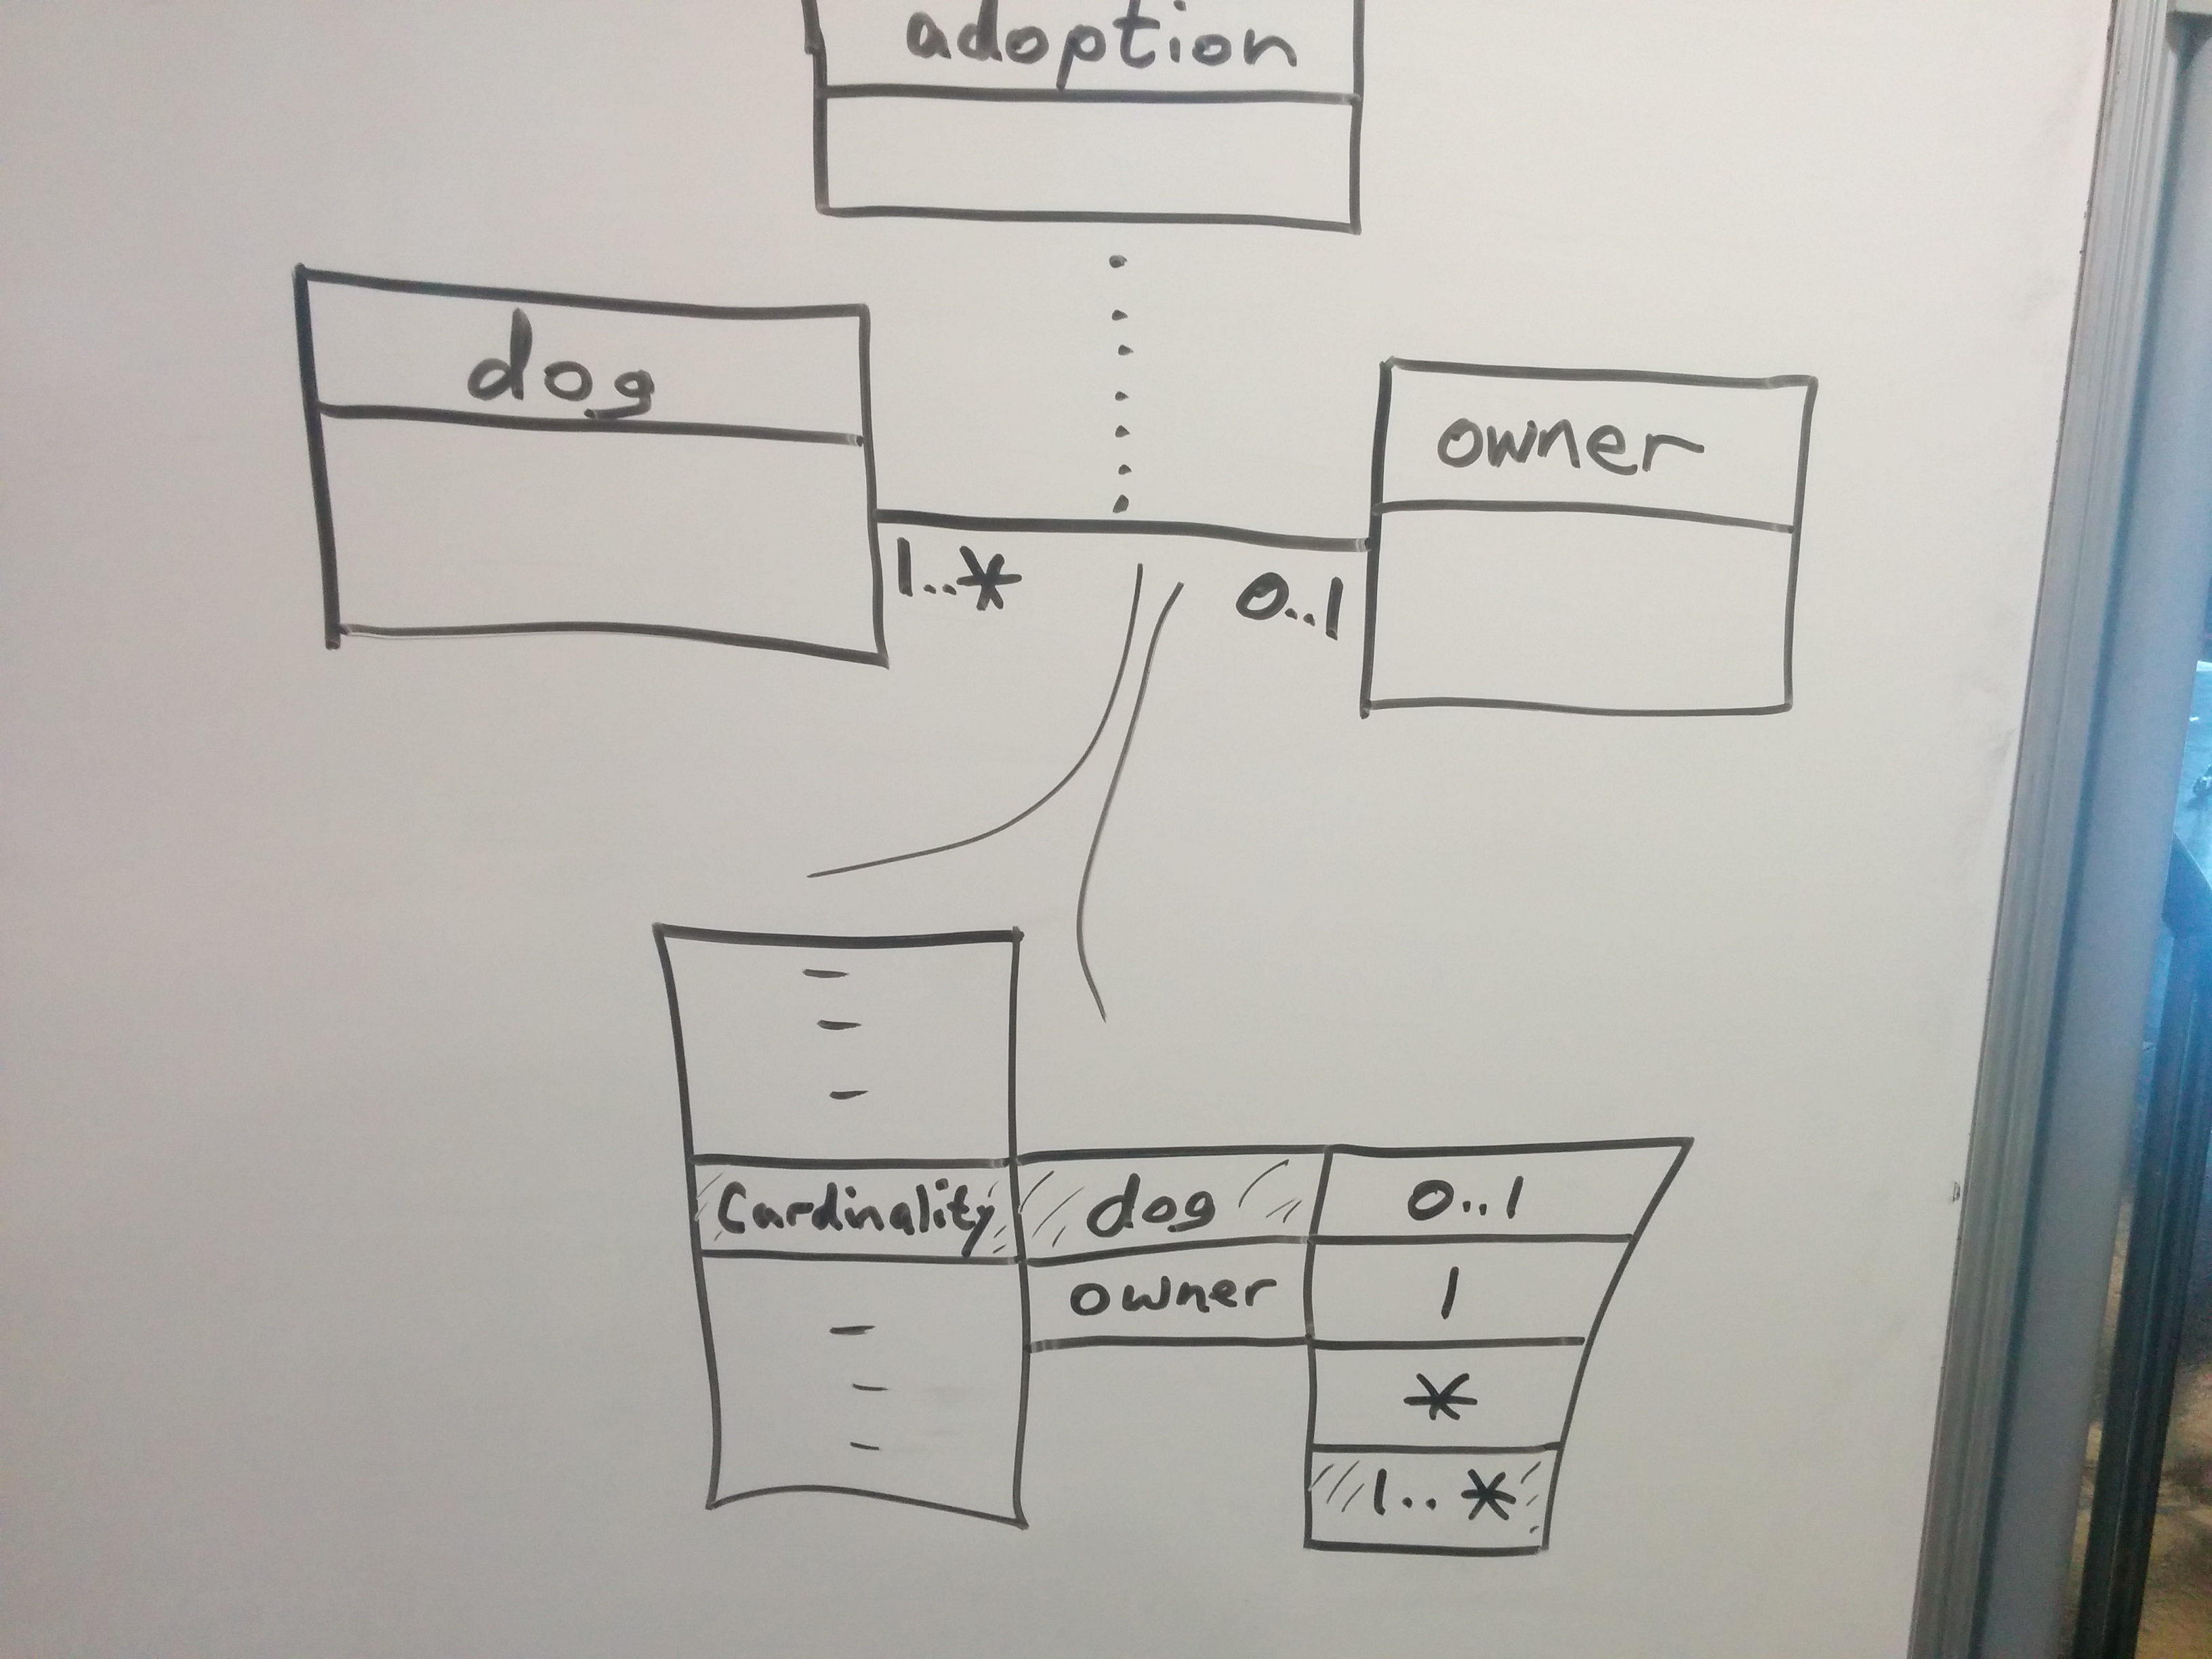 adoption
dog
owner
1..*
0..1
Cardinality dog 0..1
owner 1
*
1..*